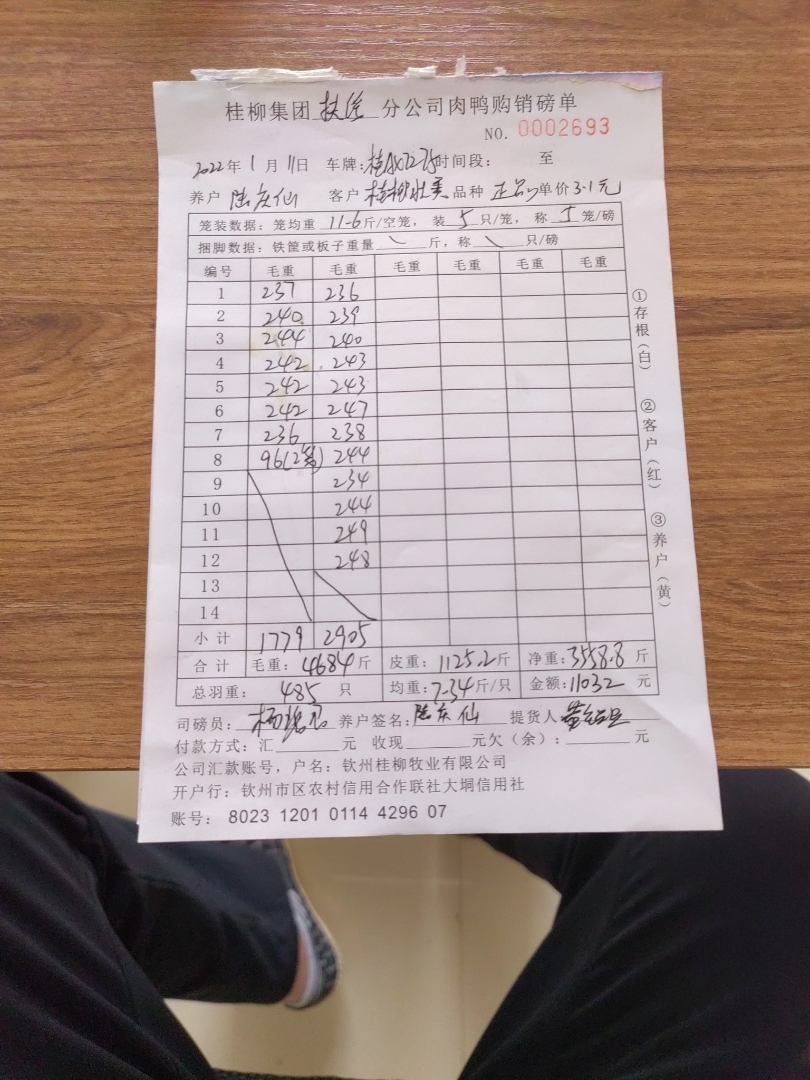 桂柳集团 扶绥 分公司肉鸭购销磅单
NO. 0002693
2022年 1 月 11日 车牌: 时间段: 至
养户 陆庆仙 客户 桂柳壮美 品种 正品 单价 3.1元
笼装数据: 笼均重 11.6 斤/空笼, 装 5 只/笼, 称 5 笼/磅
捆脚数据: 铁筐或板子重量 \ 斤, 称 \ 只/磅
编号 毛重 毛重 毛重 毛重 毛重 毛重
1 237 236
2 240 239
3 244 240
4 242 243
5 242 243
6 242 247
7 236 238
8 96(2笼) 244
9 234
10 244
11 249
12 248
13
14
小计 1779 2905
合计 毛重: 4684 斤 皮重: 1125.2 斤 净重: 3558.8 斤
总羽重: 485 只 均重: 7.34 斤/只 金额: 11032 元
司磅员: 养户签名: 陆庆仙 提货人
付款方式: 汇 元 收现 元欠(余): 元
公司汇款账号, 户名: 钦州桂柳牧业有限公司
开户行: 钦州市区农村信用合作联社大垌信用社
账号: 8023 1201 0114 4296 07
①存根(白)
②客户(红)
③养户(黄)